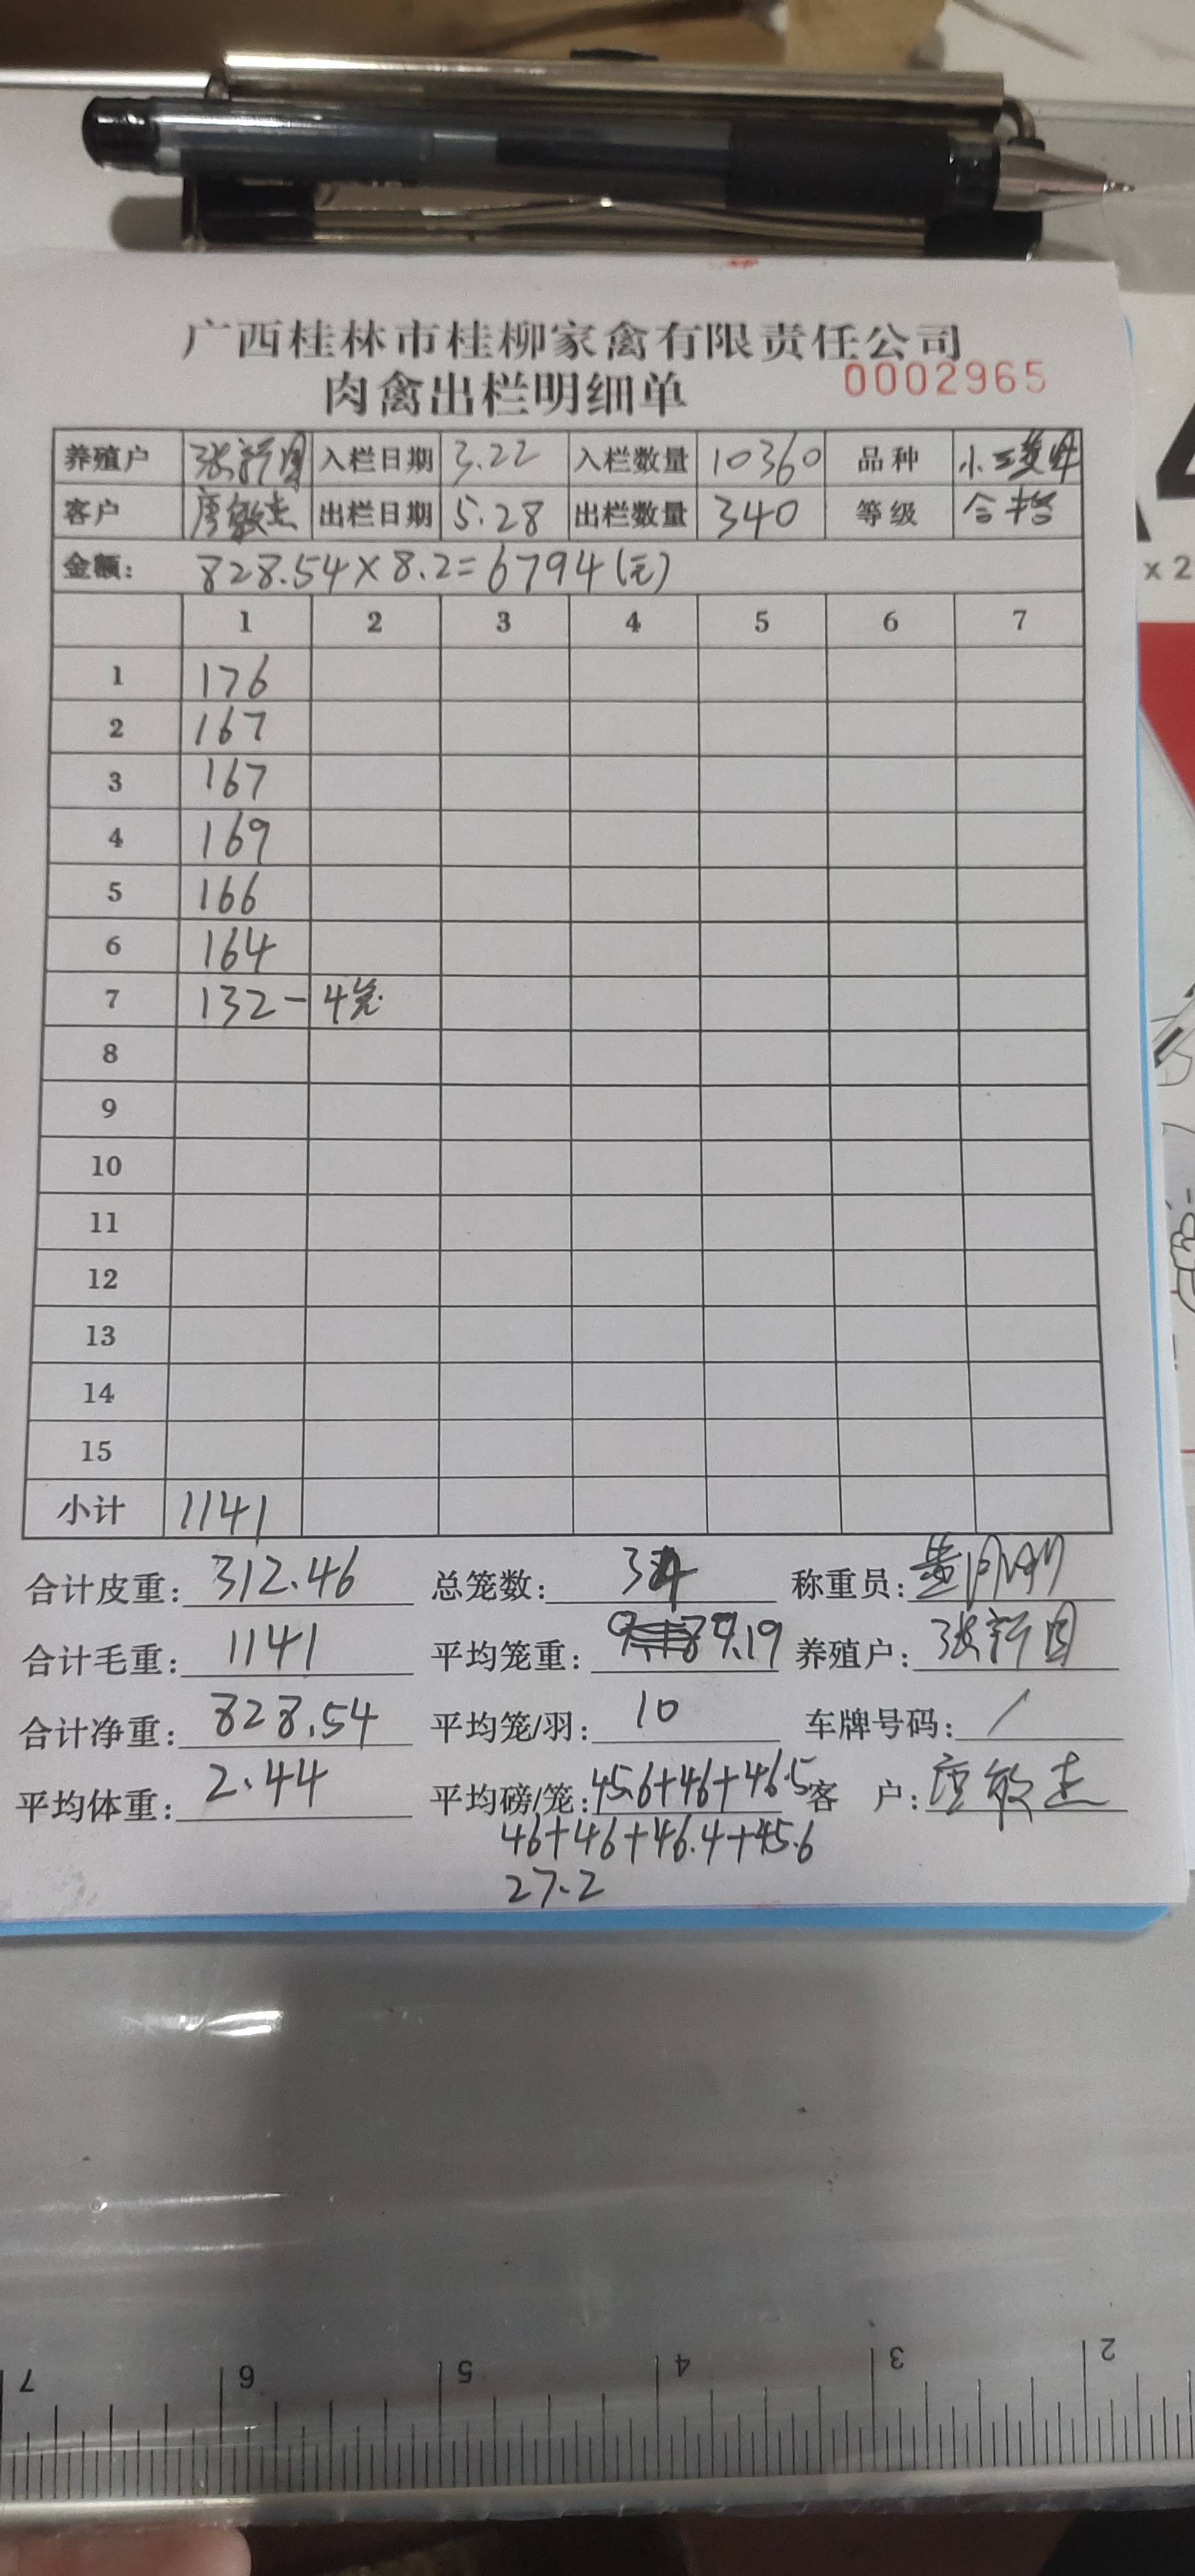 广西桂林市桂柳家禽有限责任公司
肉禽出栏明细单 0002965
养殖户 张新国 入栏日期 3.22 入栏数量 10360 品种 小三黄
客户 唐敏志 出栏日期 5.28 出栏数量 340 等级 合格
金额: 828.54×8.2=6794(元)
1 2 3 4 5 6 7
1 176
2 167
3 167
4 169
5 166
6 164
7 132-4笼.
8
9
10
11
12
13
14
15
小计 1141
合计皮重: 312.46 总笼数: 34 称重员: 黄
合计毛重: 1141 平均笼重: 9.19 养殖户: 张新国
合计净重: 828.54 平均笼/羽: 10 车牌号码: /
平均体重: 2.44 平均磅/笼: 45.6+46+46.5 客 户: 唐敏志
46+46+46.4+45.6
27.2
x 2
7 6 5 4 3 2